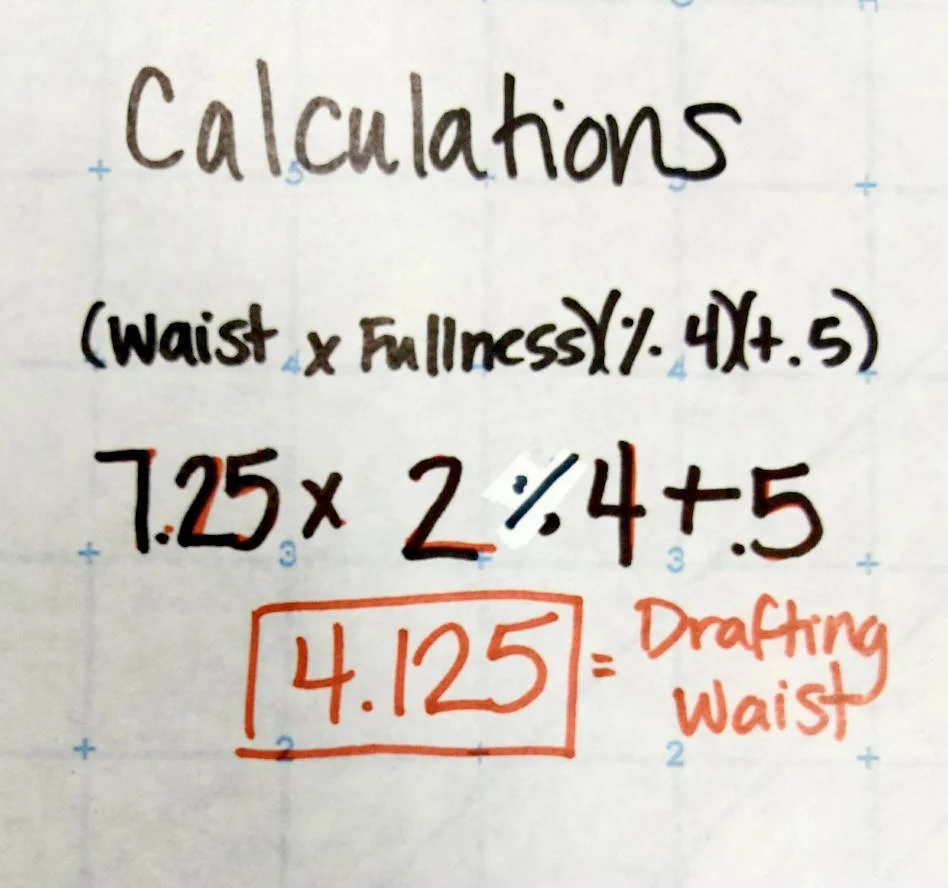 Calculations
5 5
(Waist x Fullness)(٪ 4)(+.5)
4 4
7.25 x 2 ٪ 4 + .5
3 3
4.125 = Drafting
Waist
2 2